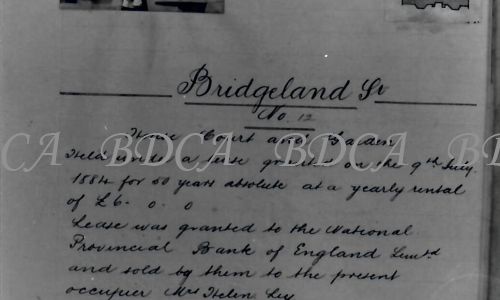 Bridgeland St
No. 12
House Court and Garden
Held under a lease granted on the 9th July
1884 for 60 years absolute at a yearly rental
of £6. 0. 0
Lease was granted to the National
Provincial Bank of England Limtd
and sold by them to the present
occupier Mrs Helen Ley
CA BDCA BDCA BDCA